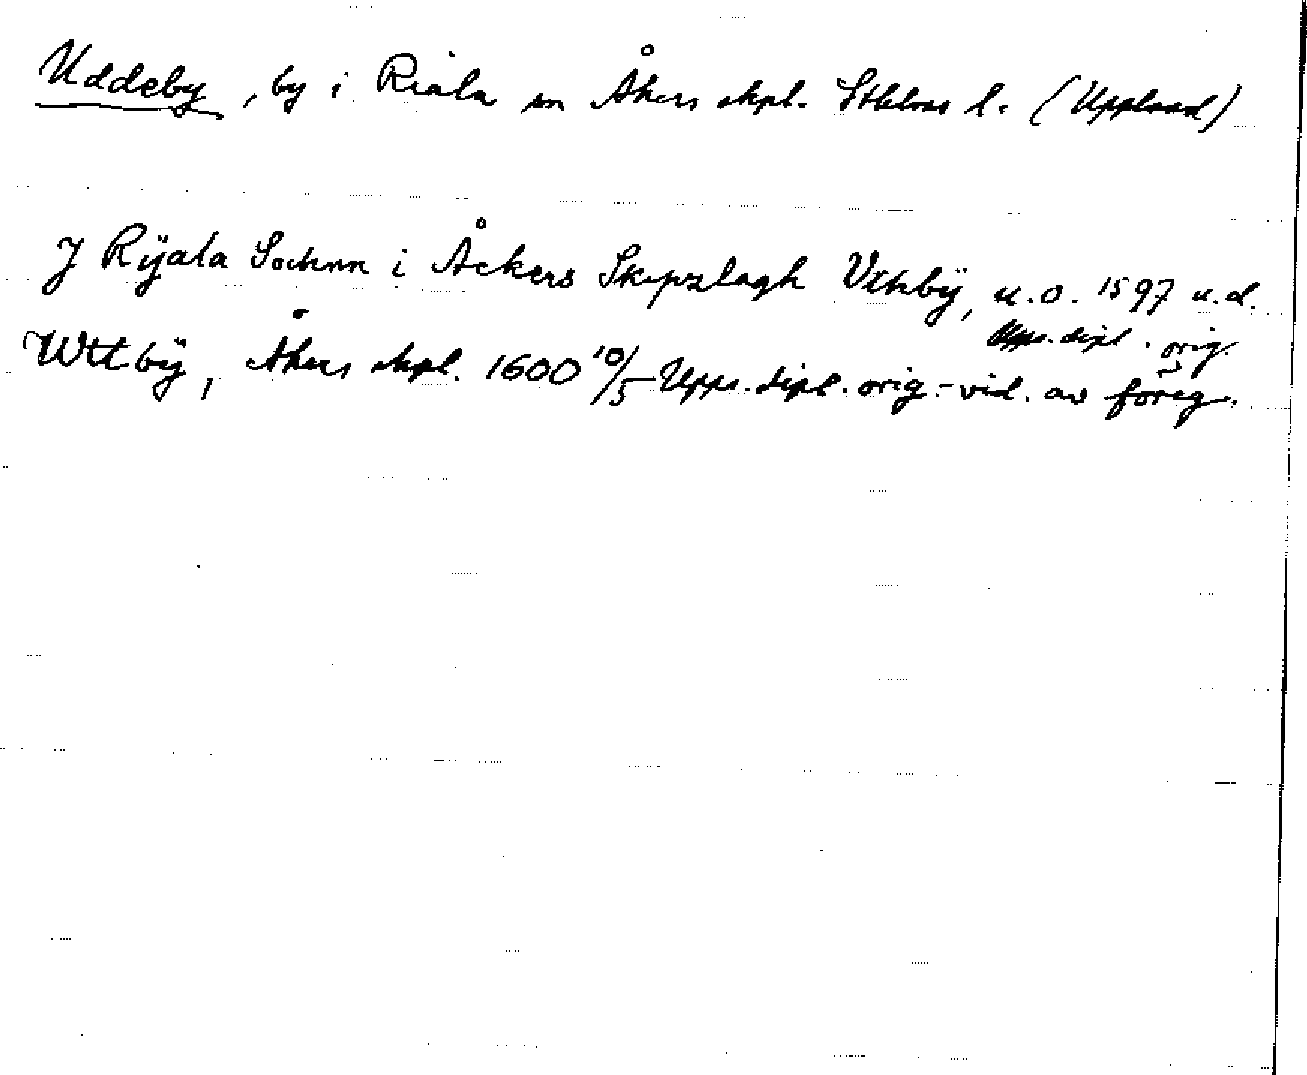 Uddeby, by i Riala sn Åkers skpl. Sthlms l. (Uppland)
J Rÿala Sochnn i Åckers Skepzlagh Vthbÿ, u.o. 1597 u.d.
Upps. dipl. orig.
Wttbÿ, Åkers skpl. 1600 10/5 Upps. dipl. orig.-vid. av föreg.